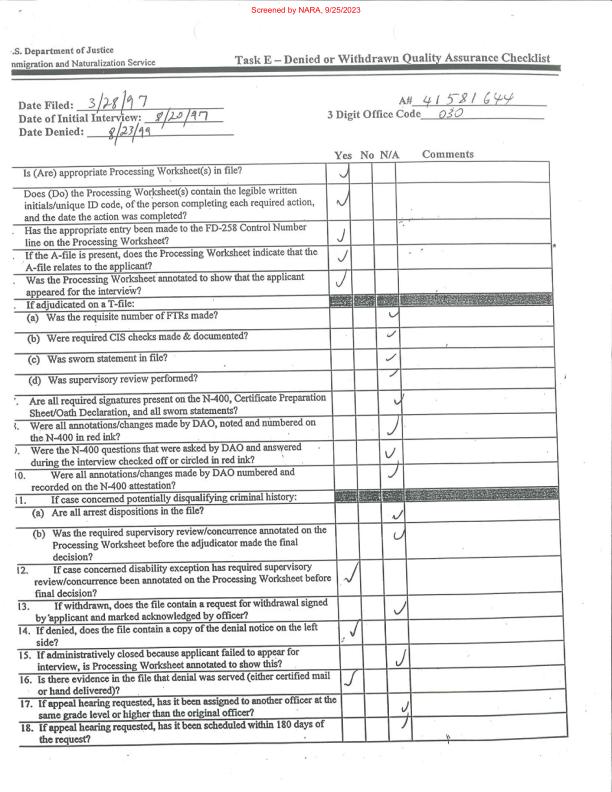 Screened by NARA, 9/25/2023
.S. Department of Justice
nmigration and Naturalization Service
Task E – Denied or Withdrawn Quality Assurance Checklist
Date Filed: 3/28/97
A# 41 581 644
Date of Initial Interview: 8/20/97
3 Digit Office Code 030
Date Denied: 8/23/99
Yes No N/A Comments
Is (Are) appropriate Processing Worksheet(s) in file? ✓
Does (Do) the Processing Worksheet(s) contain the legible written
initials/unique ID code, of the person completing each required action, ✓
and the date the action was completed?
Has the appropriate entry been made to the FD-258 Control Number
line on the Processing Worksheet? ✓
If the A-file is present, does the Processing Worksheet indicate that the
A-file relates to the applicant? ✓
Was the Processing Worksheet annotated to show that the applicant
appeared for the interview? ✓
If adjudicated on a T-file:
(a) Was the requisite number of FTRs made? ✓
(b) Were required CIS checks made & documented? ✓
(c) Was sworn statement in file? ✓
(d) Was supervisory review performed? ✓
Are all required signatures present on the N-400, Certificate Preparation
Sheet/Oath Declaration, and all sworn statements? ✓
Were all annotations/changes made by DAO, noted and numbered on
the N-400 in red ink? ✓
Were the N-400 questions that were asked by DAO and answered
during the interview checked off or circled in red ink? ✓
10. Were all annotations/changes made by DAO numbered and
recorded on the N-400 attestation? ✓
11. If case concerned potentially disqualifying criminal history:
(a) Are all arrest dispositions in the file? ✓
(b) Was the required supervisory review/concurrence annotated on the ✓
Processing Worksheet before the adjudicator made the final
decision?
12. If case concerned disability exception has required supervisory
review/concurrence been annotated on the Processing Worksheet before ✓
final decision?
13. If withdrawn, does the file contain a request for withdrawal signed
by applicant and marked acknowledged by officer? ✓
14. If denied, does the file contain a copy of the denial notice on the left ✓
side?
15. If administratively closed because applicant failed to appear for
interview, is Processing Worksheet annotated to show this? ✓
16. Is there evidence in the file that denial was served (either certified mail ✓
or hand delivered)?
17. If appeal hearing requested, has it been assigned to another officer at the
same grade level or higher than the original officer? ✓
18. If appeal hearing requested, has it been scheduled within 180 days of ✓
the request?